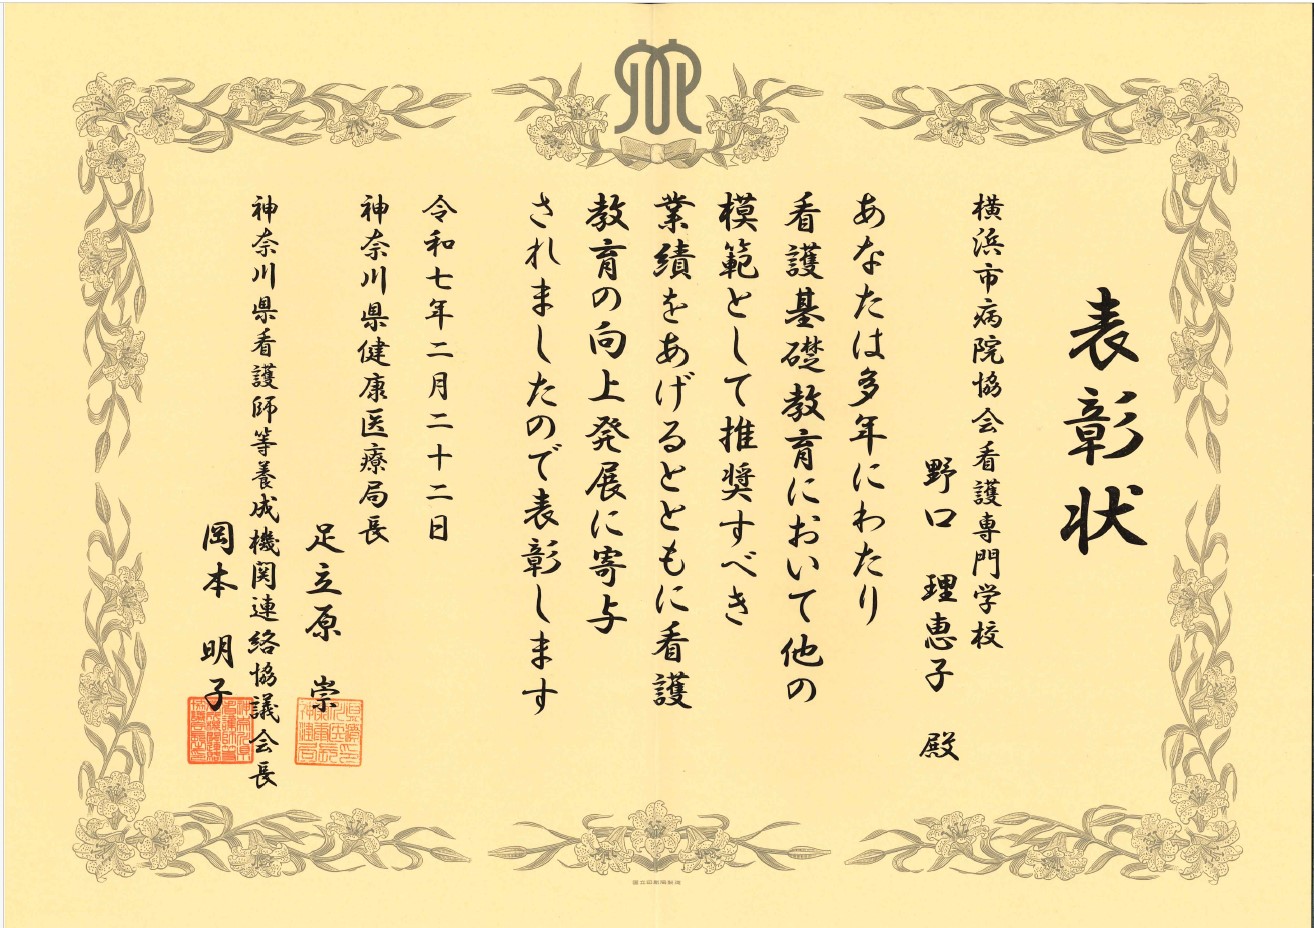 表彰状
横浜市病院協会看護専門学校
野口 理恵子 殿
あなたは多年にわたり
看護基礎教育において他の
模範として推奨すべき
業績をあげるとともに看護
教育の向上発展に寄与
されましたので表彰します
令和七年二月二十二日
神奈川県健康医療局長
足立原 崇
神奈川県看護師等養成機関連絡協議会長
岡本 明子